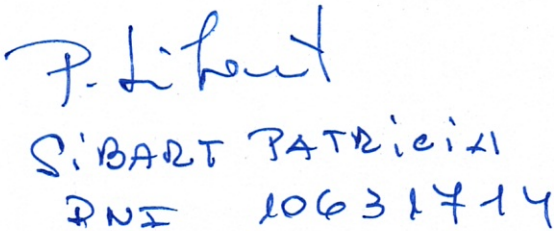 P. Sibart
SiBART PATRiCiA
DNI 10631714